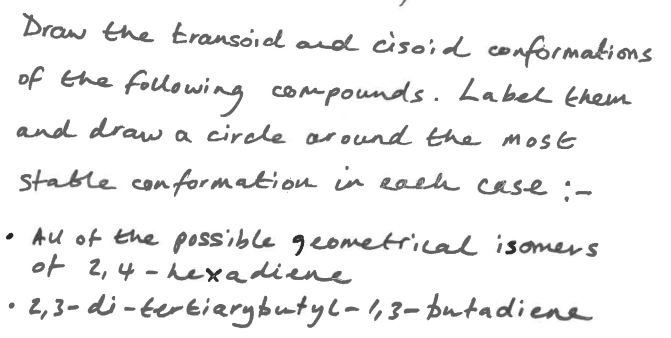 Draw the transoid and cisoid conformations
of the following compounds. Label them
and draw a circle around the most
stable conformation in each case :-
• All of the possible geometrical isomers
of 2,4-hexadiene
• 2,3-di-tertiarybutyl-1,3-butadiene